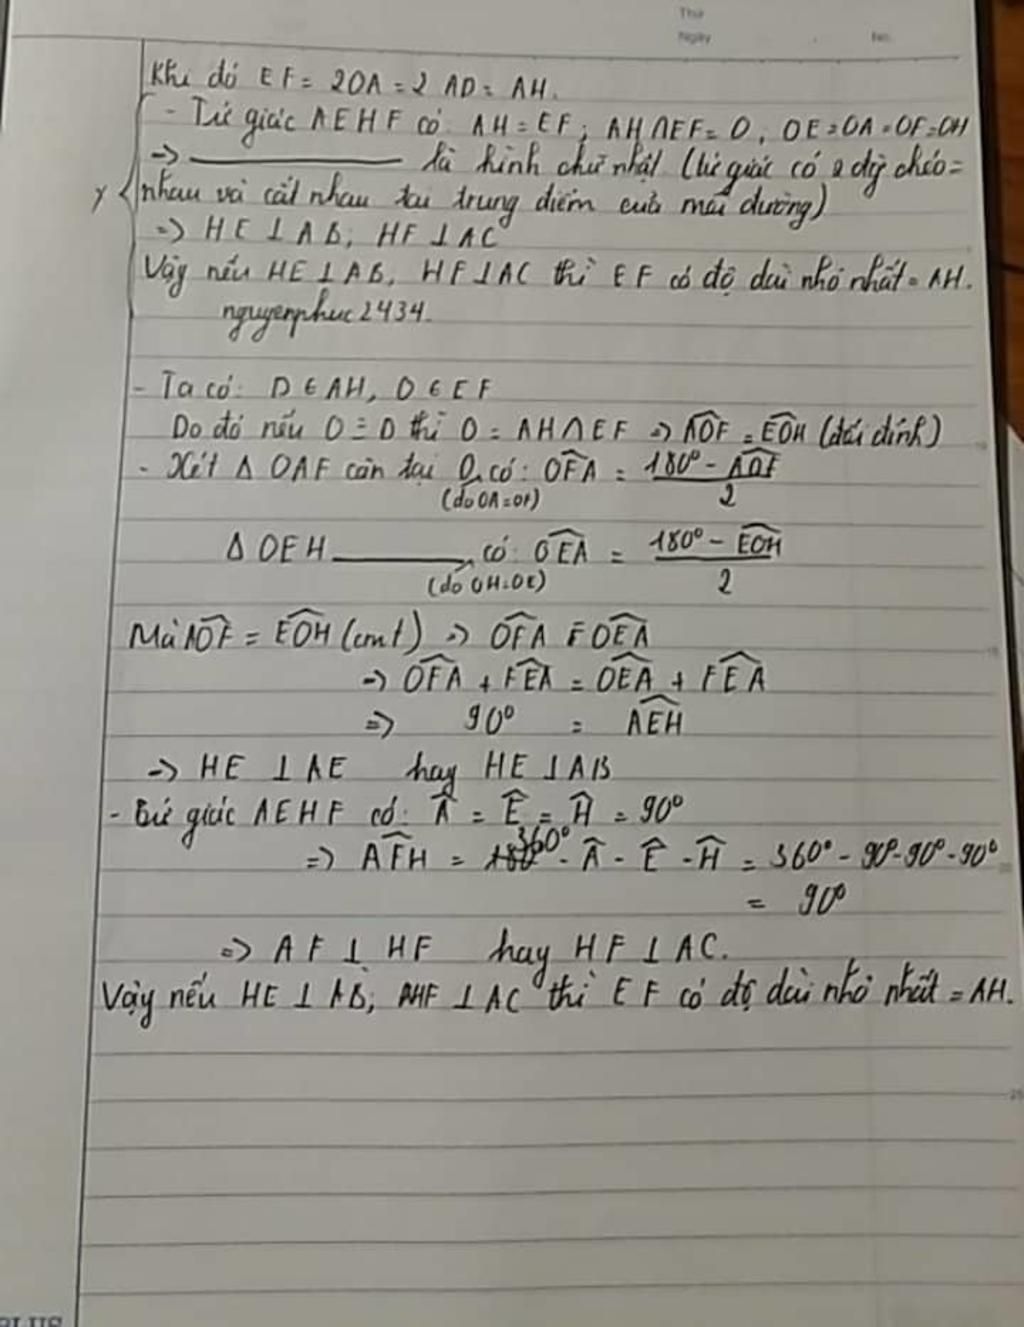 Thứ
Ngày No.
Khi đó EF = 2OA = 2 AD = AH.
- Tứ giác AEHF có: AH = EF; AH∩EF = O, OE=OA=OF=OH
=> ———— là hình chữ nhật (tứ giác có 2 đg chéo =
nhau và cắt nhau tại trung điểm của mỗi đường)
=> HE ⊥ AB; HF ⊥ AC
Vậy nếu HE ⊥ AB, HF ⊥ AC thì EF có độ dài nhỏ nhất = AH.
nguyenphuc2434.
- Ta có: D ∈ AH, O ∈ EF
Do đó nếu O ≡ D thì O = AH∩EF => \widehat{AOF} = \widehat{EOH} (đối đỉnh)
- Xét Δ OAF cân tại O có: \widehat{OFA} = \frac{180° - \widehat{AOF}}{2}
(do OA=OF)
Δ OEH ———— có: \widehat{OEA} = \frac{180° - \widehat{EOH}}{2}
(do OH=OE)
Mà \widehat{AOF} = \widehat{EOH} (cmt) => \widehat{OFA} = \widehat{OEA}
=> \widehat{OFA} + \widehat{FEA} = \widehat{OEA} + \widehat{FEA}
=> 90° = \widehat{AEH}
=> HE ⊥ AE hay HE ⊥ AB
- Tứ giác AEHF có: \widehat{A} = \widehat{E} = \widehat{H} = 90°
=> \widehat{AFH} = 360° - \widehat{A} - \widehat{E} - \widehat{H} = 360° - 90° - 90° - 90°
= 90°
=> AF ⊥ HF hay HF ⊥ AC.
Vậy nếu HE ⊥ AB; HF ⊥ AC thì EF có độ dài nhỏ nhất = AH.
25